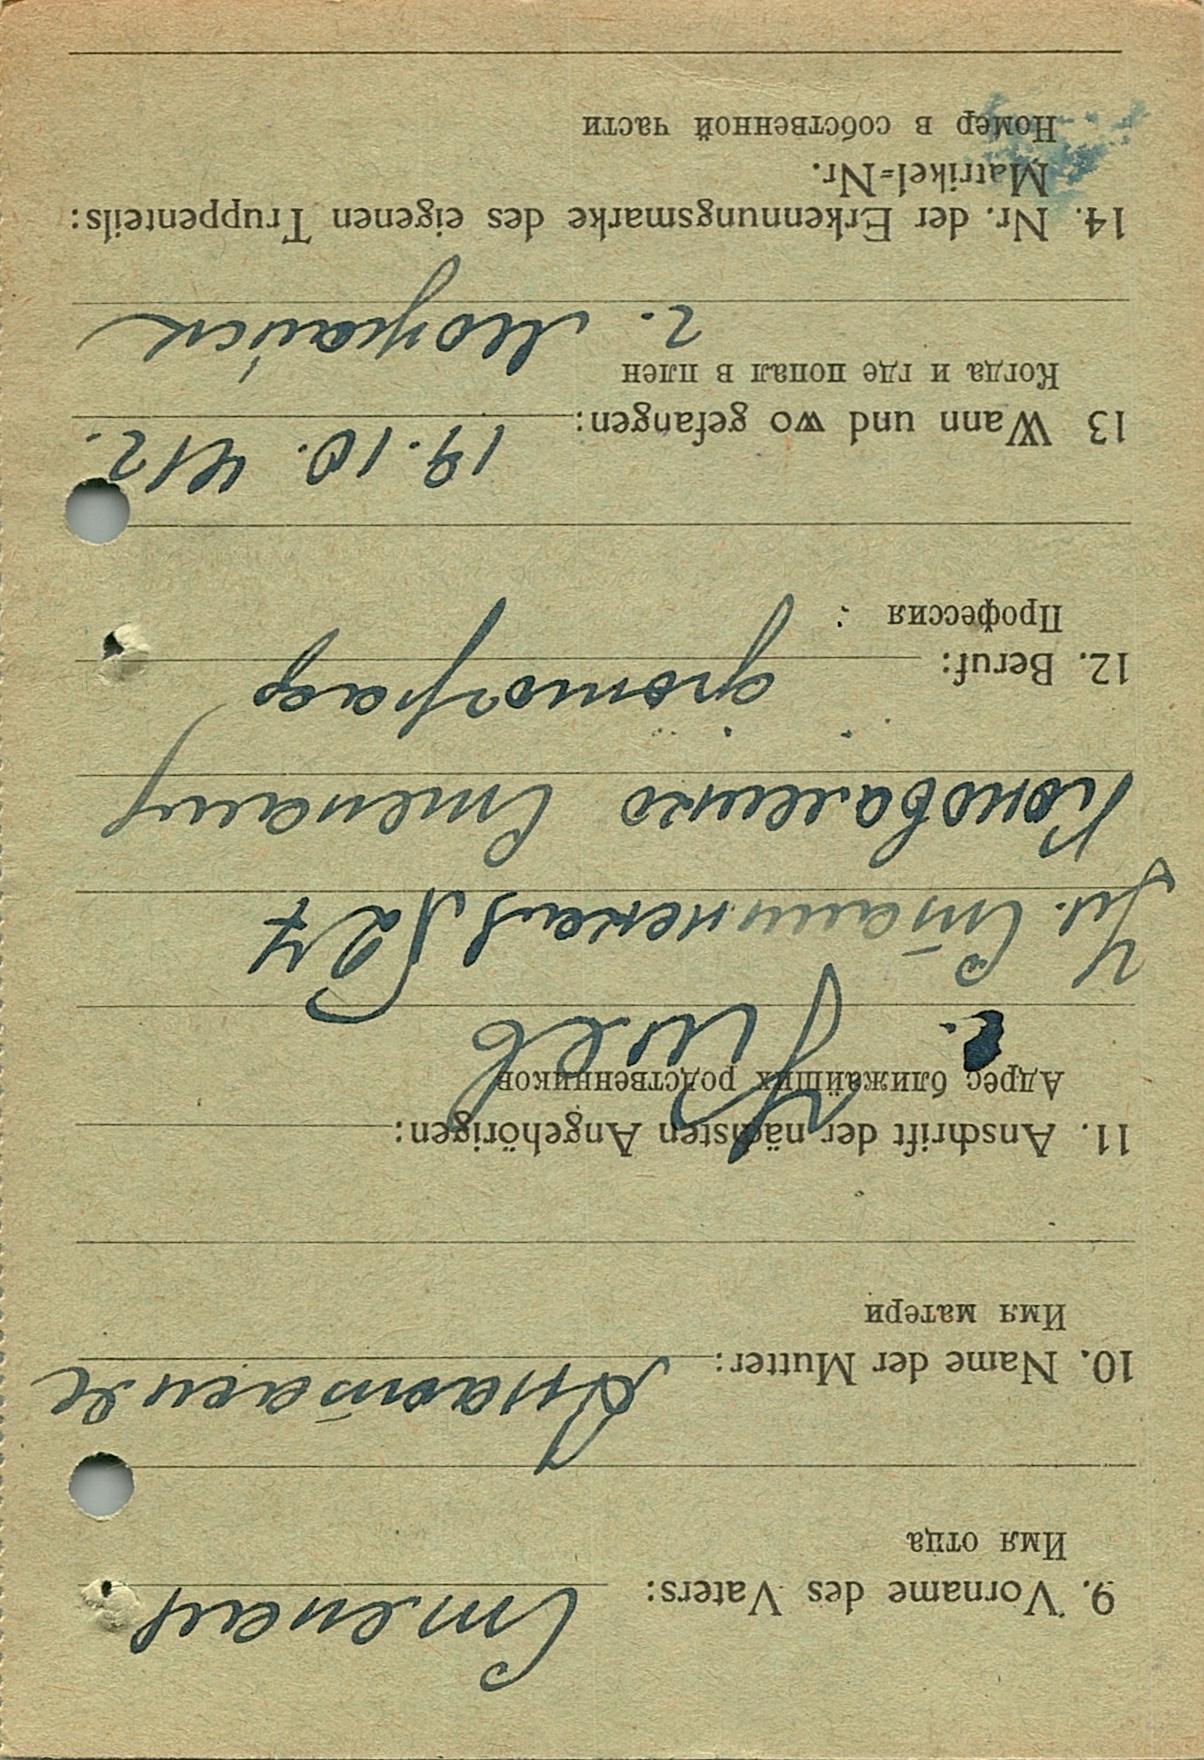 9. Vorname des Vaters: Степан
Имя отца
10. Name der Mutter: Анастасия
Имя матери
11. Anschrift der nächsten Angehörigen:
Адрес ближайших родственников
г. Киев
Ул. Сталинская 27
Коноваленко Степану
12. Beruf: фотограф
Профессия :
13 Wann und wo gefangen: 19.10. 41г.
Когда и где попал в плен
г. Можайск
14. Nr. der Erkennungsmarke des eigenen Truppenteils:
Matrikel-Nr.
Номер в собственной части